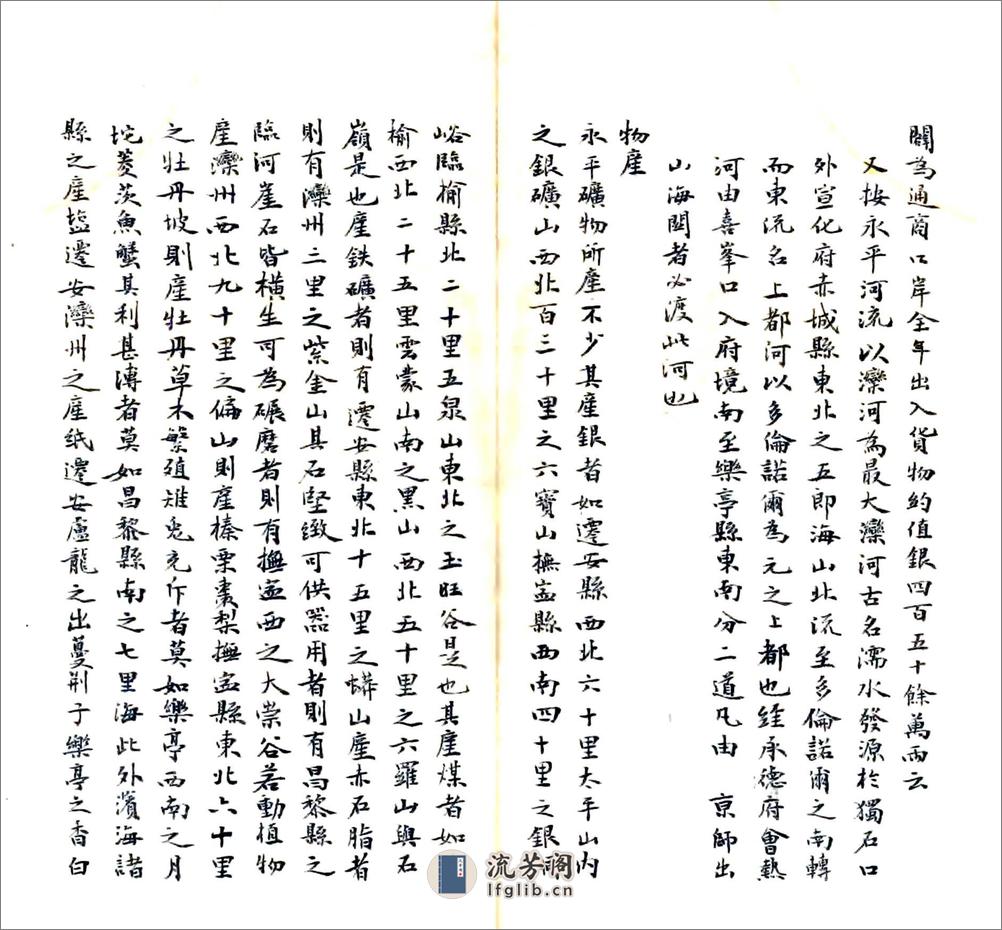 關為通商口岸全年出入貨物約值銀四百五十餘萬兩云
又按永平河流以灤河為最大灤河古名濡水發源於獨石口
外宣化府赤城縣東北之五郎海山北流至多倫諾爾之南轉
而東流名上都河以多倫諾爾為元之上都也經承德府會熱
河由喜峯口入府境南至樂亭縣東南分二道凡由 京師出
山海關者必渡此河也
物產
永平礦物所產不少其產銀者如遷安縣西北六十里太平山內
之銀礦山西北百三十里之六寶山撫寧縣西南四十里之銀洞
峪臨榆縣北二十里五泉山東北之玉旺谷是也其產煤者如
榆西北二十五里雲蒙山南之黑山西北五十里之六羅山與石
嶺是也產鉄礦者則有遷安縣東北十五里之蟒山產赤石脂者
則有灤州三里之紫金山其石堅緻可供器用者則有昌黎縣之
臨河崖石皆橫生可為碾磨者則有撫寧西之大崇谷若動植物
產灤州西北九十里之偏山則產榛栗棗梨撫寧縣東北六十里
之牡丹坡則產牡丹草木繁殖雉兎充斥者莫如樂亭西南之月
坨菱茨魚蟹其利甚溥者莫如昌黎縣南之七里海此外濱海諸
縣之產塩遷安灤州之產紙遷安盧龍之出蔓荊子樂亭之香白
流芳阁
lfglib.cn